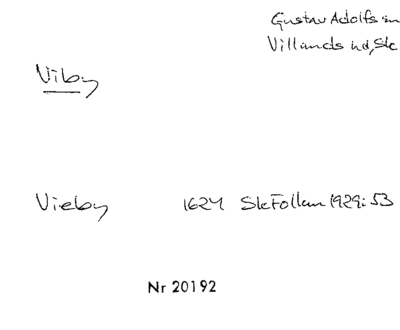 Gustav Adolfs sn
Villands hd, Sk
Viby
Vieby 1624 SkFollm 1929:53
Nr 20192